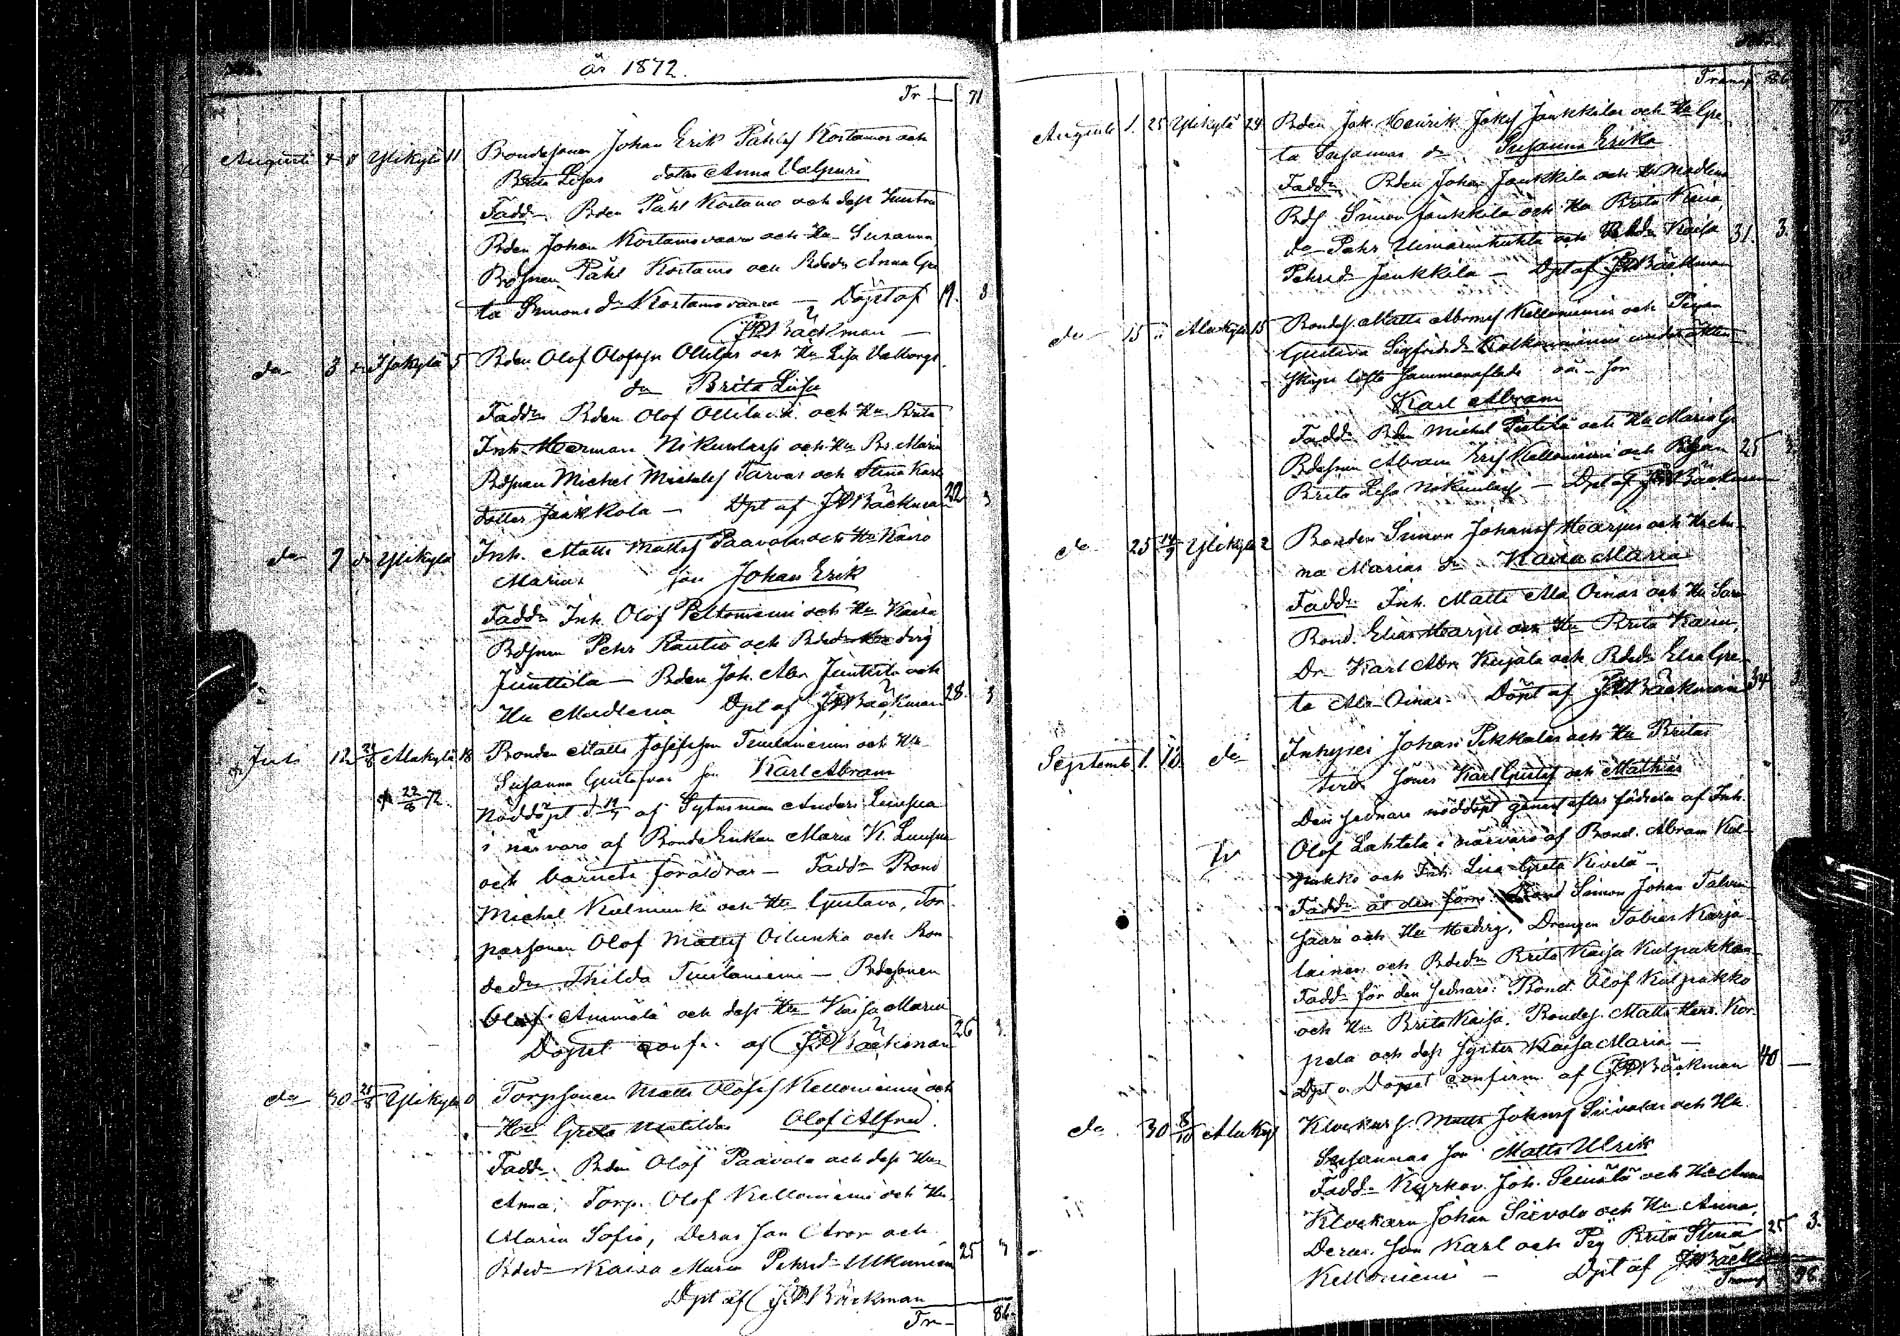 år 1872.
Tr — 71
Augusti 4 8 Ylikylä 11 Bondesonen Johan Erik Påhls Kostamos och
Brita Lisas dotter Anna Valpuri
Fadd. Bden Påhl Kostamo och dess hustru
Bden Johan Kostamovaara och Hu Susanna
Bdsonen Påhl Kostamo och Bdedr Anna Gre
ta Simonsdr Kostamovaara — Döpt af 19. 3
JW Bäckman —
do 3 do Isokylä 5 Bden Olof Olofsson Ollilas och Hu Lisa Valborgs
dr Brita Lisa
Fadd. Bden Olof Ollila och Hu Brita
Inh. Herman och Hu Br. Maria
Bdsonen Michel Michels Tarvas och Stina Karls
dotter Jankkola — Dpt af JW Bäckman 22 3
do 7 do Ylikylä Inh. Matts Matts Paavolas och Hu Kaisa
Marias son Johan Erik
Fadd. Inh. Olof Peltoniemi och Hu Kaisa
Bdsonen Pehr Rautio och Bdedr Hedvig
Junttila — Bden Joh. Abr. Junttila och
Hu Madlena Dpt af JW Bäckman 28. 3
Juli 12 Alakylä 18 Bonden Matts Josefsson Tuulaniemi och Hu
Susanna Gustafvas son Karl Abram
22/8 72 Nöddöpt d. af Sytning man Anders Luusua
i närvaro af Bonde Enkan Maria K. Luusua
och barnets föräldrar — Fadd. Bond
Michel Kulmunki och Hu Gustava, Tor
parsonen Olof Matts Oilunka och Bon
dedr Thilda Tuulaniemi — Bdesonen
Olof Annala och dess Hu Kaisa Maria 26 3
Dopet conf. af JW Bäckman
do 30 25/8 Ylikylä Torpsonen Matts Olofs Kelloniemi och
Hu Greta Matildas Olof Alfred
Fadd. Bden Olof Paavola och dess Hu
Anna, Torp. Olof Kelloniemi och Hu
Maria Sofia, Deras son Aron och
Bded Kaisa Maria Pehrsd Ulkuniemi 25 3
Dpt af JW Bäckman
Tr — 86
Transp 86
Augusti 1. 25 Ylikylä 24 Bden Joh. Henrik Johs Jankkilas och Hu Gre
ta Susannas dr Susanna Erika
Fadd. Bden Johan Jankkila och Hu Madlena
Bds Simon Jankkila och Hu Brita Kaisa,
do Pehr och Bdedr Kaisa 31. 3.
Pehrsdr Jankkila — Dpt af JW Bäckman
do 15 " Alakylä 15 Bondes. Matts Abrams Kelloniemi och Pigan
Gustava Sigfridsdr under äkten
skaps löfte sammanaflade oä. son
Karl Abram
Fadd. Bden Michel och Hu Maria G.
Bdesonen Abram Ers Kelloniemi och Pigan 25 3.
Brita Lisa — Dpt af JW Bäckman
do 25 14/9 Ylikylä 2 Bonden Simon Johans Harjus och Hu An
na Marias dr Kaisa Maria
Fadd. Inh. Matts Ala Oinas och Hu Sara
Bond. Elias Harju och Hu Brita Kaisa,
Dr. Karl Abr. Kujala och Bdedr Elsa Gre
ta Ala Oinas. Döpt af JW Bäckman 34 3
Septemb. 1. 13. do Inhyses Johan Pekkalas och Hu Britas
tvds söner Karl Gustaf och Mathias
Den sednare nöddöpt genast efter födseln af Inh.
Olof Lahtela i närvaro af Bond. Abram Kul
Tv pakko och Inh. Lisa Greta Kivelä —
Fadd. åt den förre: Bond Simon Johan Talvin
saari och Hu Hedvig, Drengen Tobias Karja
lainen och Bdedr Brita Kaisa Kulpakko
Fadd. för den sednare: Bond Olof Kulpakko
och Hu Brita Kaisa. Bondes. Matts Hans. Kor
pela och dess syster Kaisa Maria — 40 —
Dpt o. Dopet confirm. af JW Bäckman
do 30 8/10 Alakyl Klockars. Matts Johans Siivolas och Hu
Susannas son Matts Ulrik
Fadd. Kyrkov. Joh. Seinälä och Hu Anna
Klockaren Johan Siivola och Hu Anna,
Deras son Karl och Pig Brita Stina 25 3.
Kelloniemi — Dpt af JW Bäckman
Transp 98